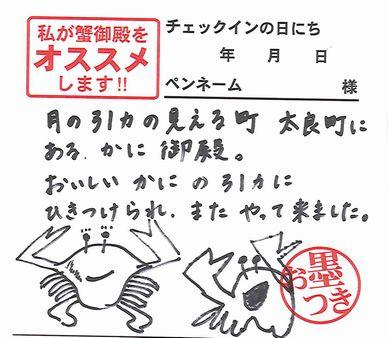 私が蟹御殿を
オススメ
します!!
チェックインの日にち
年 月 日
ペンネーム 様
月の引力の見える町 太良町に
ある、かに御殿。
おいしい かに の引力に
ひきつけられ、また やって来ました。
お墨
つき